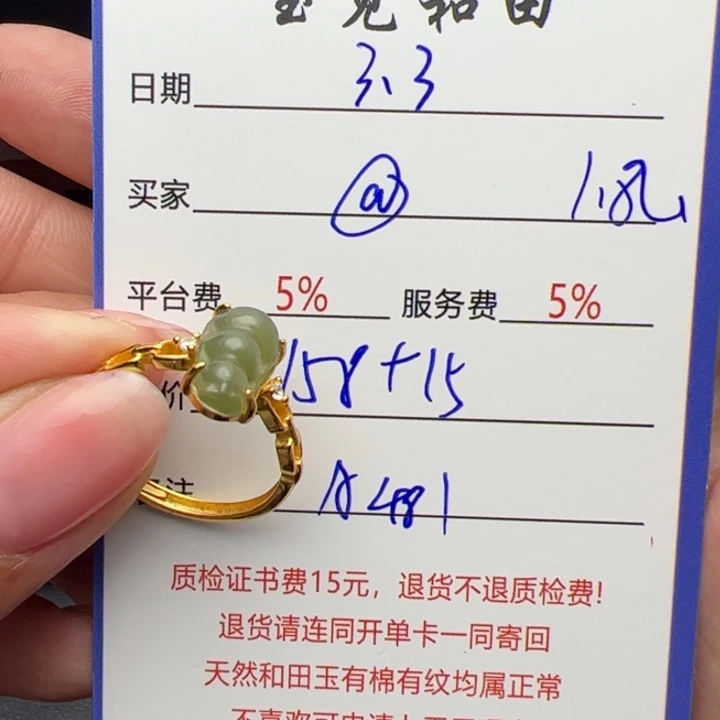 玉见和田
日期 3.3
买家 @ 1.风
平台费 5% 服务费 5%
价 158+15
备注 A481
质检证书费15元，退货不退质检费!
退货请连同开单卡一同寄回
天然和田玉有棉有纹均属正常